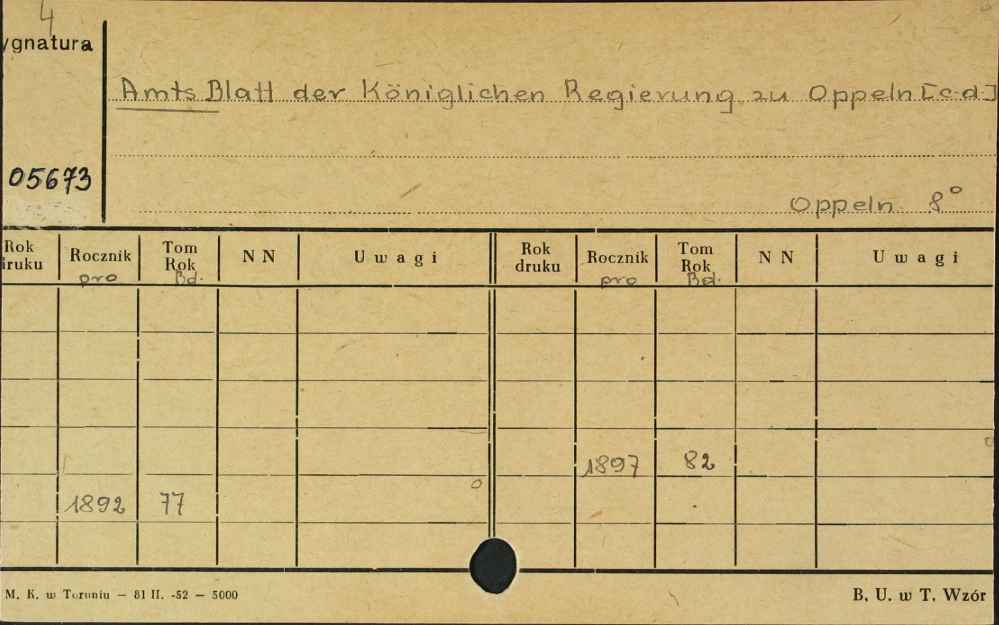 4
ygnatura
Amts Blatt der Königlichen Regierung zu Oppeln [c.d.]
05673
Oppeln 8°
Rok druku Rocznik Tom Rok N N Uwagi Rok druku Rocznik Tom Rok N N Uwagi
pro Bd. pro Bd.
1897 82
1892 77
M. K. w Toruniu — 81 II. -52 — 5000 B. U. w T. Wzór